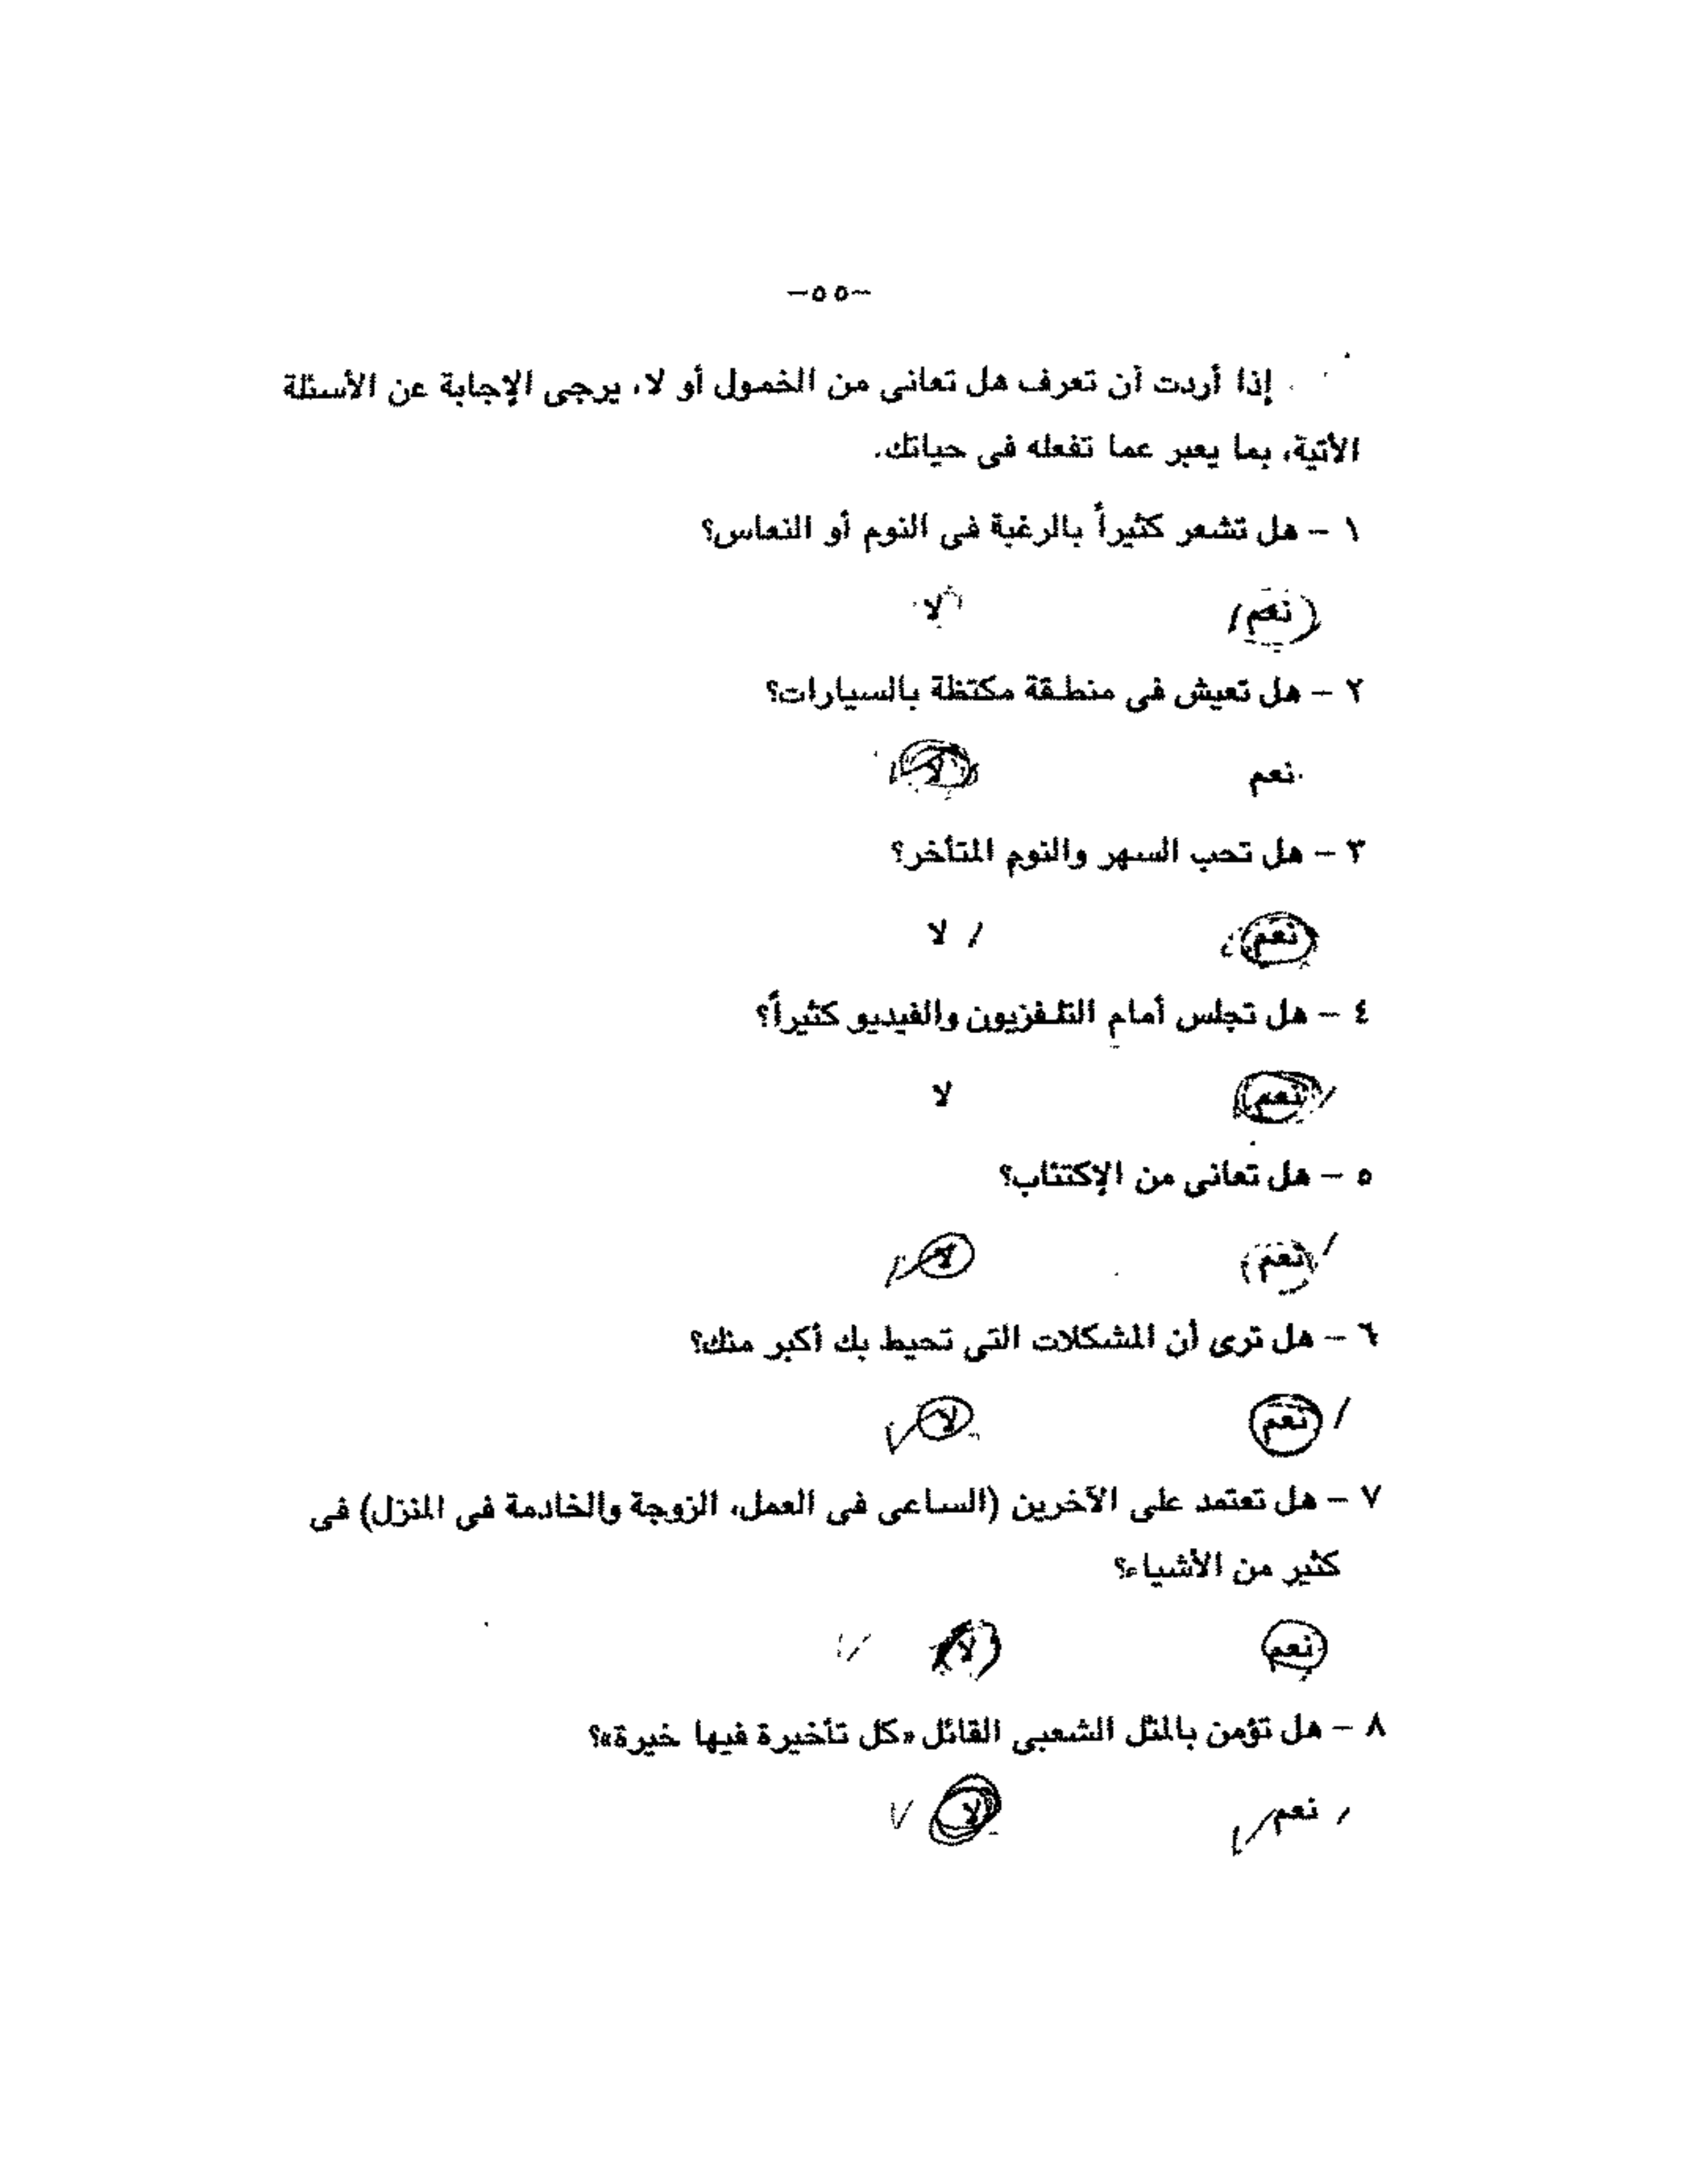 -٥٥-
إذا أردت أن تعرف هل تعانى من الخمول أو لا، يرجى الإجابة عن الأسئلة
الأتية، بما يعبر عما تفعله فى حياتك.
١ - هل تشعر كثيراً بالرغبة فى النوم أو النعاس؟
نعم لا
٢ - هل تعيش فى منطقة مكتظة بالسيارات؟
نعم لا
٣ - هل تحب السهر والنوم المتأخر؟
نعم لا
٤ - هل تجلس أمام التلفزيون والفيديو كثيراً؟
نعم لا
٥ - هل تعانى من الإكتئاب؟
نعم لا
٦ - هل ترى أن المشكلات التى تحيط بك أكبر منك؟
نعم لا
٧ - هل تعتمد على الآخرين (الساعى فى العمل، الزوجة والخادمة فى المنزل) فى
كثير من الأشياء؟
نعم لا
٨ - هل تؤمن بالمثل الشعبى القائل «كل تأخيرة فيها خيرة»؟
نعم لا